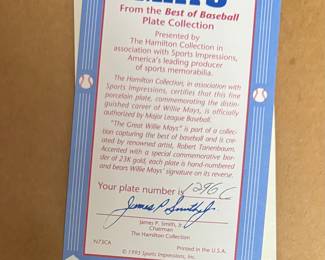 MAYS
From the Best of Baseball
Plate Collection
Presented by
The Hamilton Collection in
association with Sports Impressions,
America's leading producer
of sports memorabilia.
The Hamilton Collection, in association with
Sports Impressions, certifies that this fine
porcelain plate, commemorating the distin-
guished career of Willie Mays, is officially
authorized by Major League Baseball.
"The Great Willie Mays" is part of a collec-
tion capturing the best of baseball and is cre-
ated by renowned artist, Robert Tanenbaum.
Accented with a special commemorative bor-
der of 23K gold, each plate is hand-numbered
and bears Willie Mays' signature on its reverse.
Your plate number is 1296C
James P. Smith Jr.
James P. Smith, Jr.
Chairman
The Hamilton Collection
N73CA
Printed in the U.S.A.
© 1993 Sports Impressions, Inc.